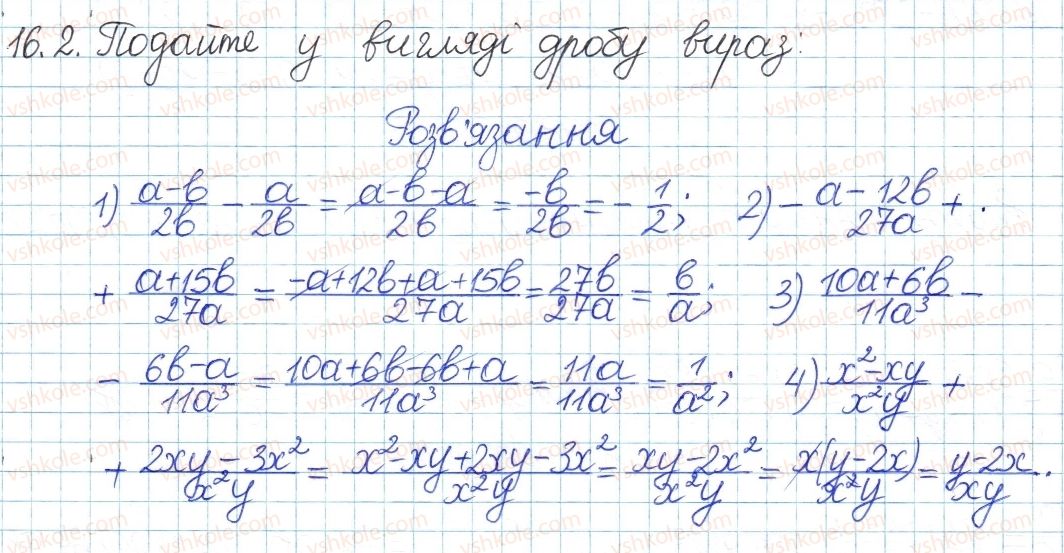 16.2. Подайте у вигляді дробу вираз:
Розв'язання
1) (a-b)/(2b) - a/(2b) = (a-b-a)/(2b) = (-b)/(2b) = -1/2; 2) -(a-12b)/(27a) + .
+ (a+15b)/(27a) = (-a+12b+a+15b)/(27a) = (27b)/(27a) = b/a; 3) (10a+6b)/(11a³) -
- (6b-a)/(11a³) = (10a+6b-6b+a)/(11a³) = (11a)/(11a³) = 1/a²; 4) (x²-xy)/(x²y) +
+ (2xy-3x²)/(x²y) = (x²-xy+2xy-3x²)/(x²y) = (xy-2x²)/(x²y) = (x(y-2x))/(x²y) = (y-2x)/(xy).